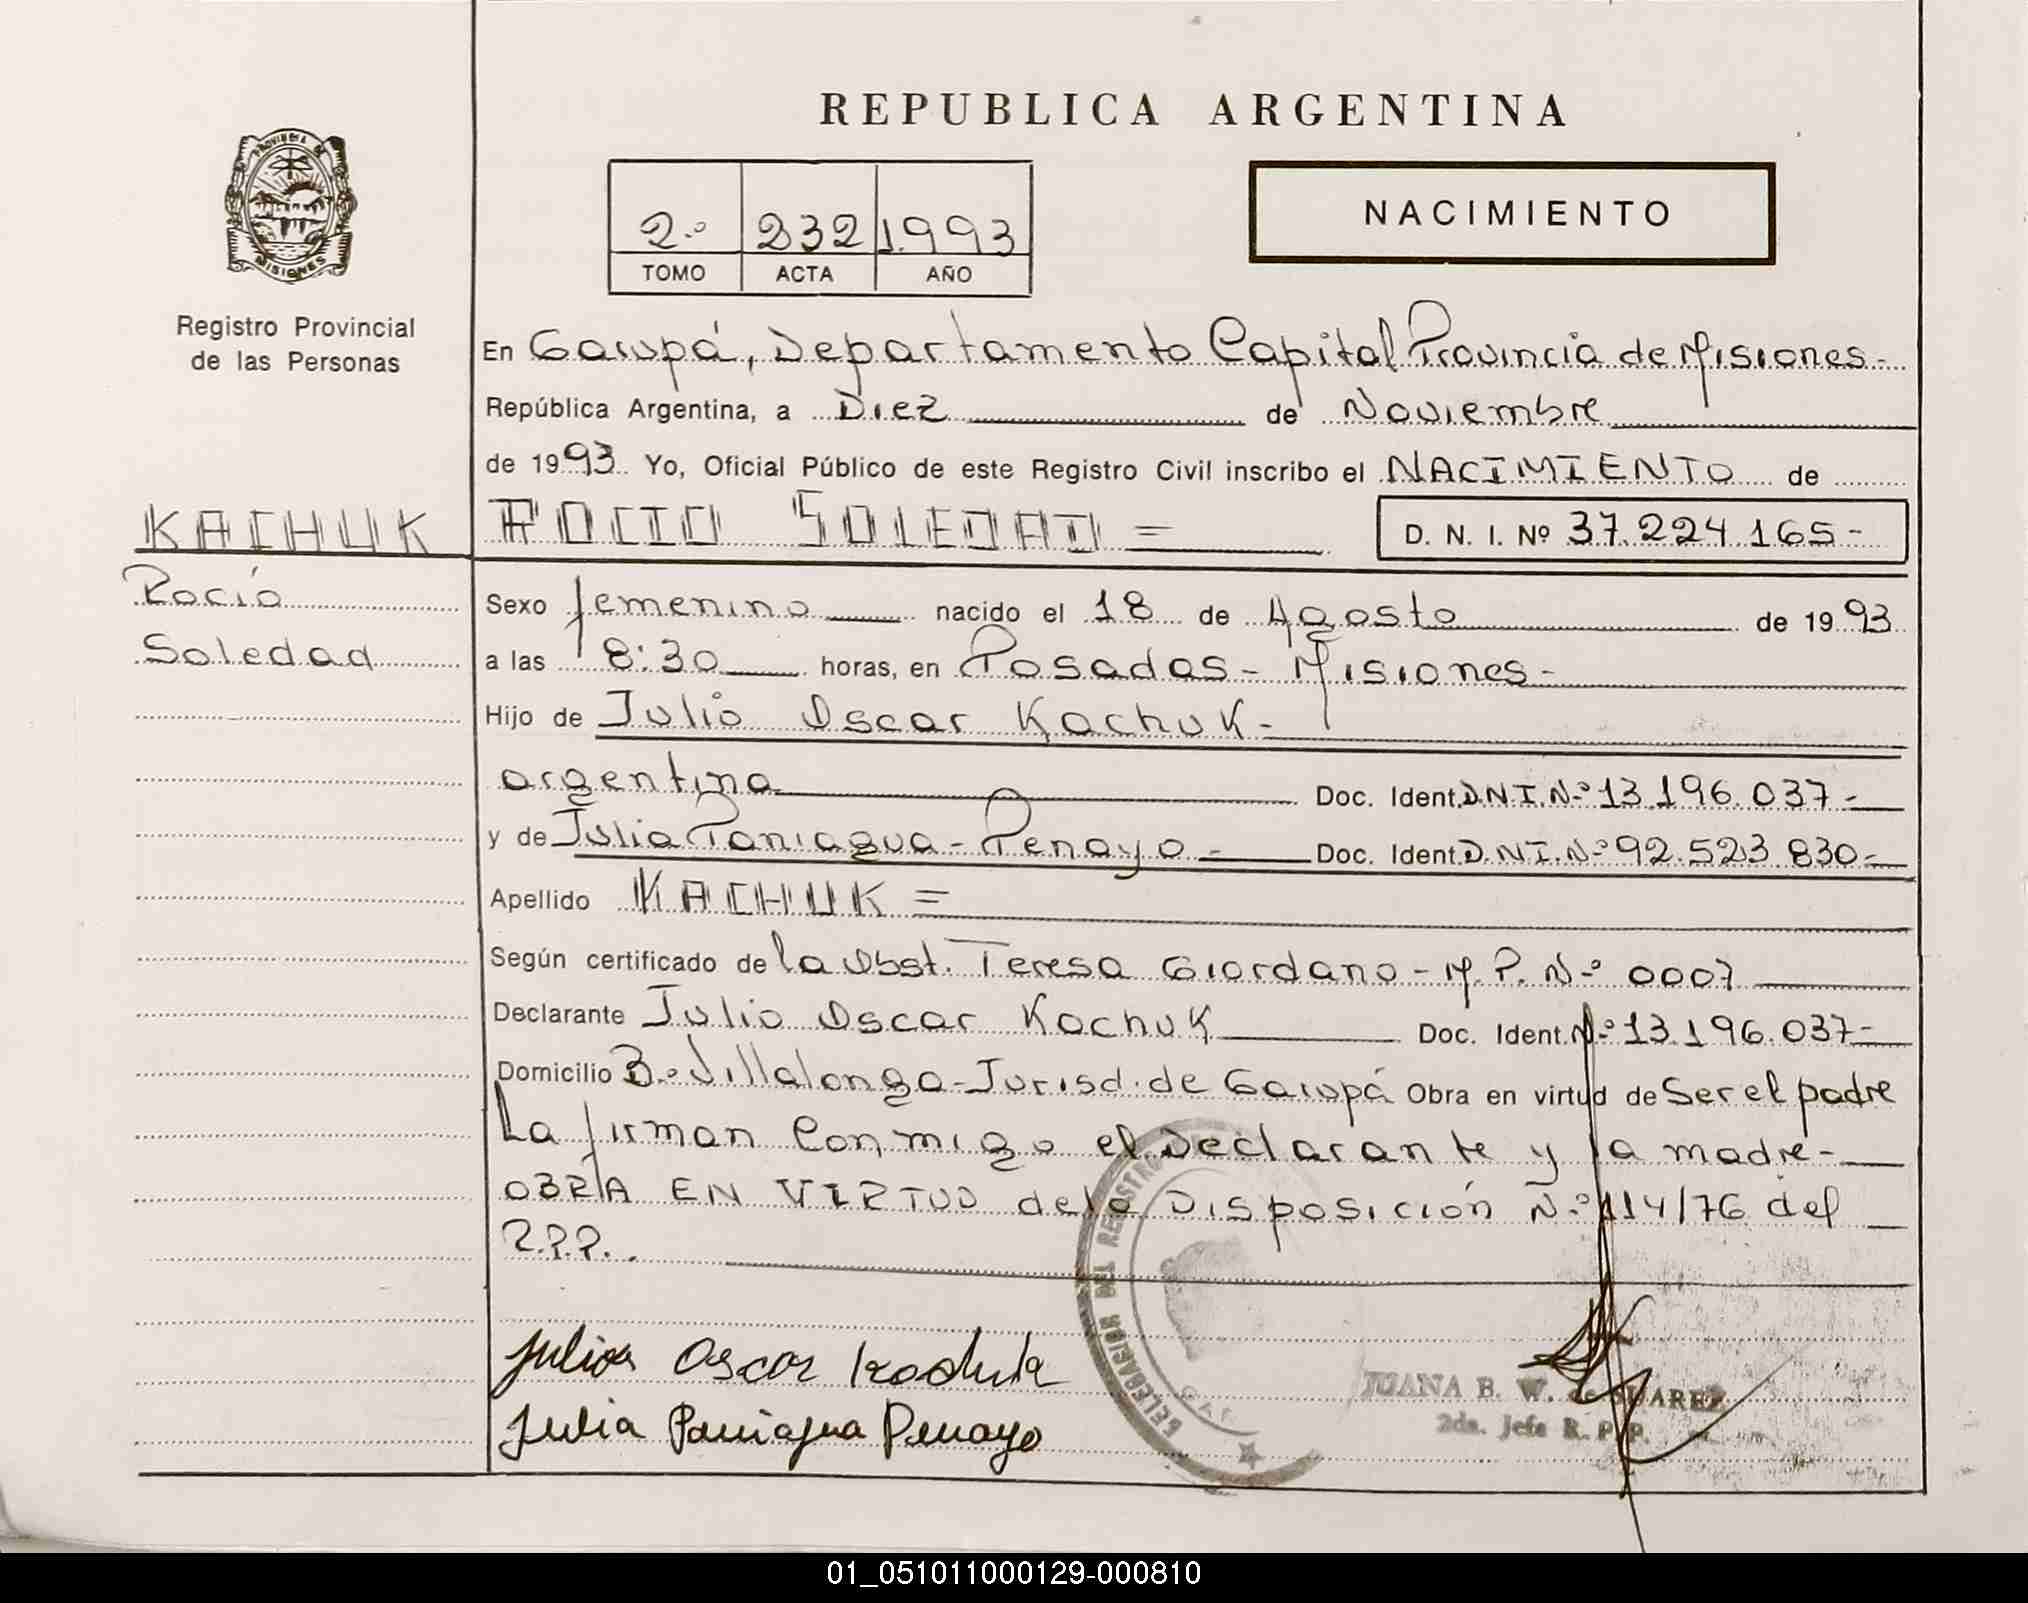 REPUBLICA ARGENTINA
PROVINCIA DE
MISIONES
Registro Provincial
de las Personas
2.º 232 1.993
TOMO ACTA AÑO
NACIMIENTO
En Garupá, Departamento Capital Provincia de Misiones.-
República Argentina, a Diez de Noviembre
de 1993 Yo, Oficial Público de este Registro Civil inscribo el NACIMIENTO de
KACHUK
ROCIO SOLEDAD =
D. N. I. Nº 37.224.165-
Rocío
Soledad
Sexo femenino nacido el 18 de Agosto de 1993
a las 8:30 horas, en Posadas - Misiones -
Hijo de Julio Oscar Kachuk-
argentina Doc. Ident. D.N.I. N.º 13.196.037-
y de Julia Paniagua - Penayo - Doc. Ident. D.N.I. N.º 92.523.830-
Apellido KACHUK =
Según certificado de la Obst. Teresa Giordano - M.P. N.º 0007
Declarante Julio Oscar Kachuk Doc. Ident. N.º 13.196.037-
Domicilio B.º Villalonga - Jurisd. de Garupá Obra en virtud de Ser el padre
La firman Conmigo el Declarante y la madre-
OBRA EN VIRTUD de la Disposición N.º 114/76 del
R.P.P..
Julio Oscar Kachuk
Julia Paniagua Penayo
DELEGACION DEL REGISTRO
JUANA B. W. de SUAREZ
2da. Jefe R. P. P.
01_051011000129-000810